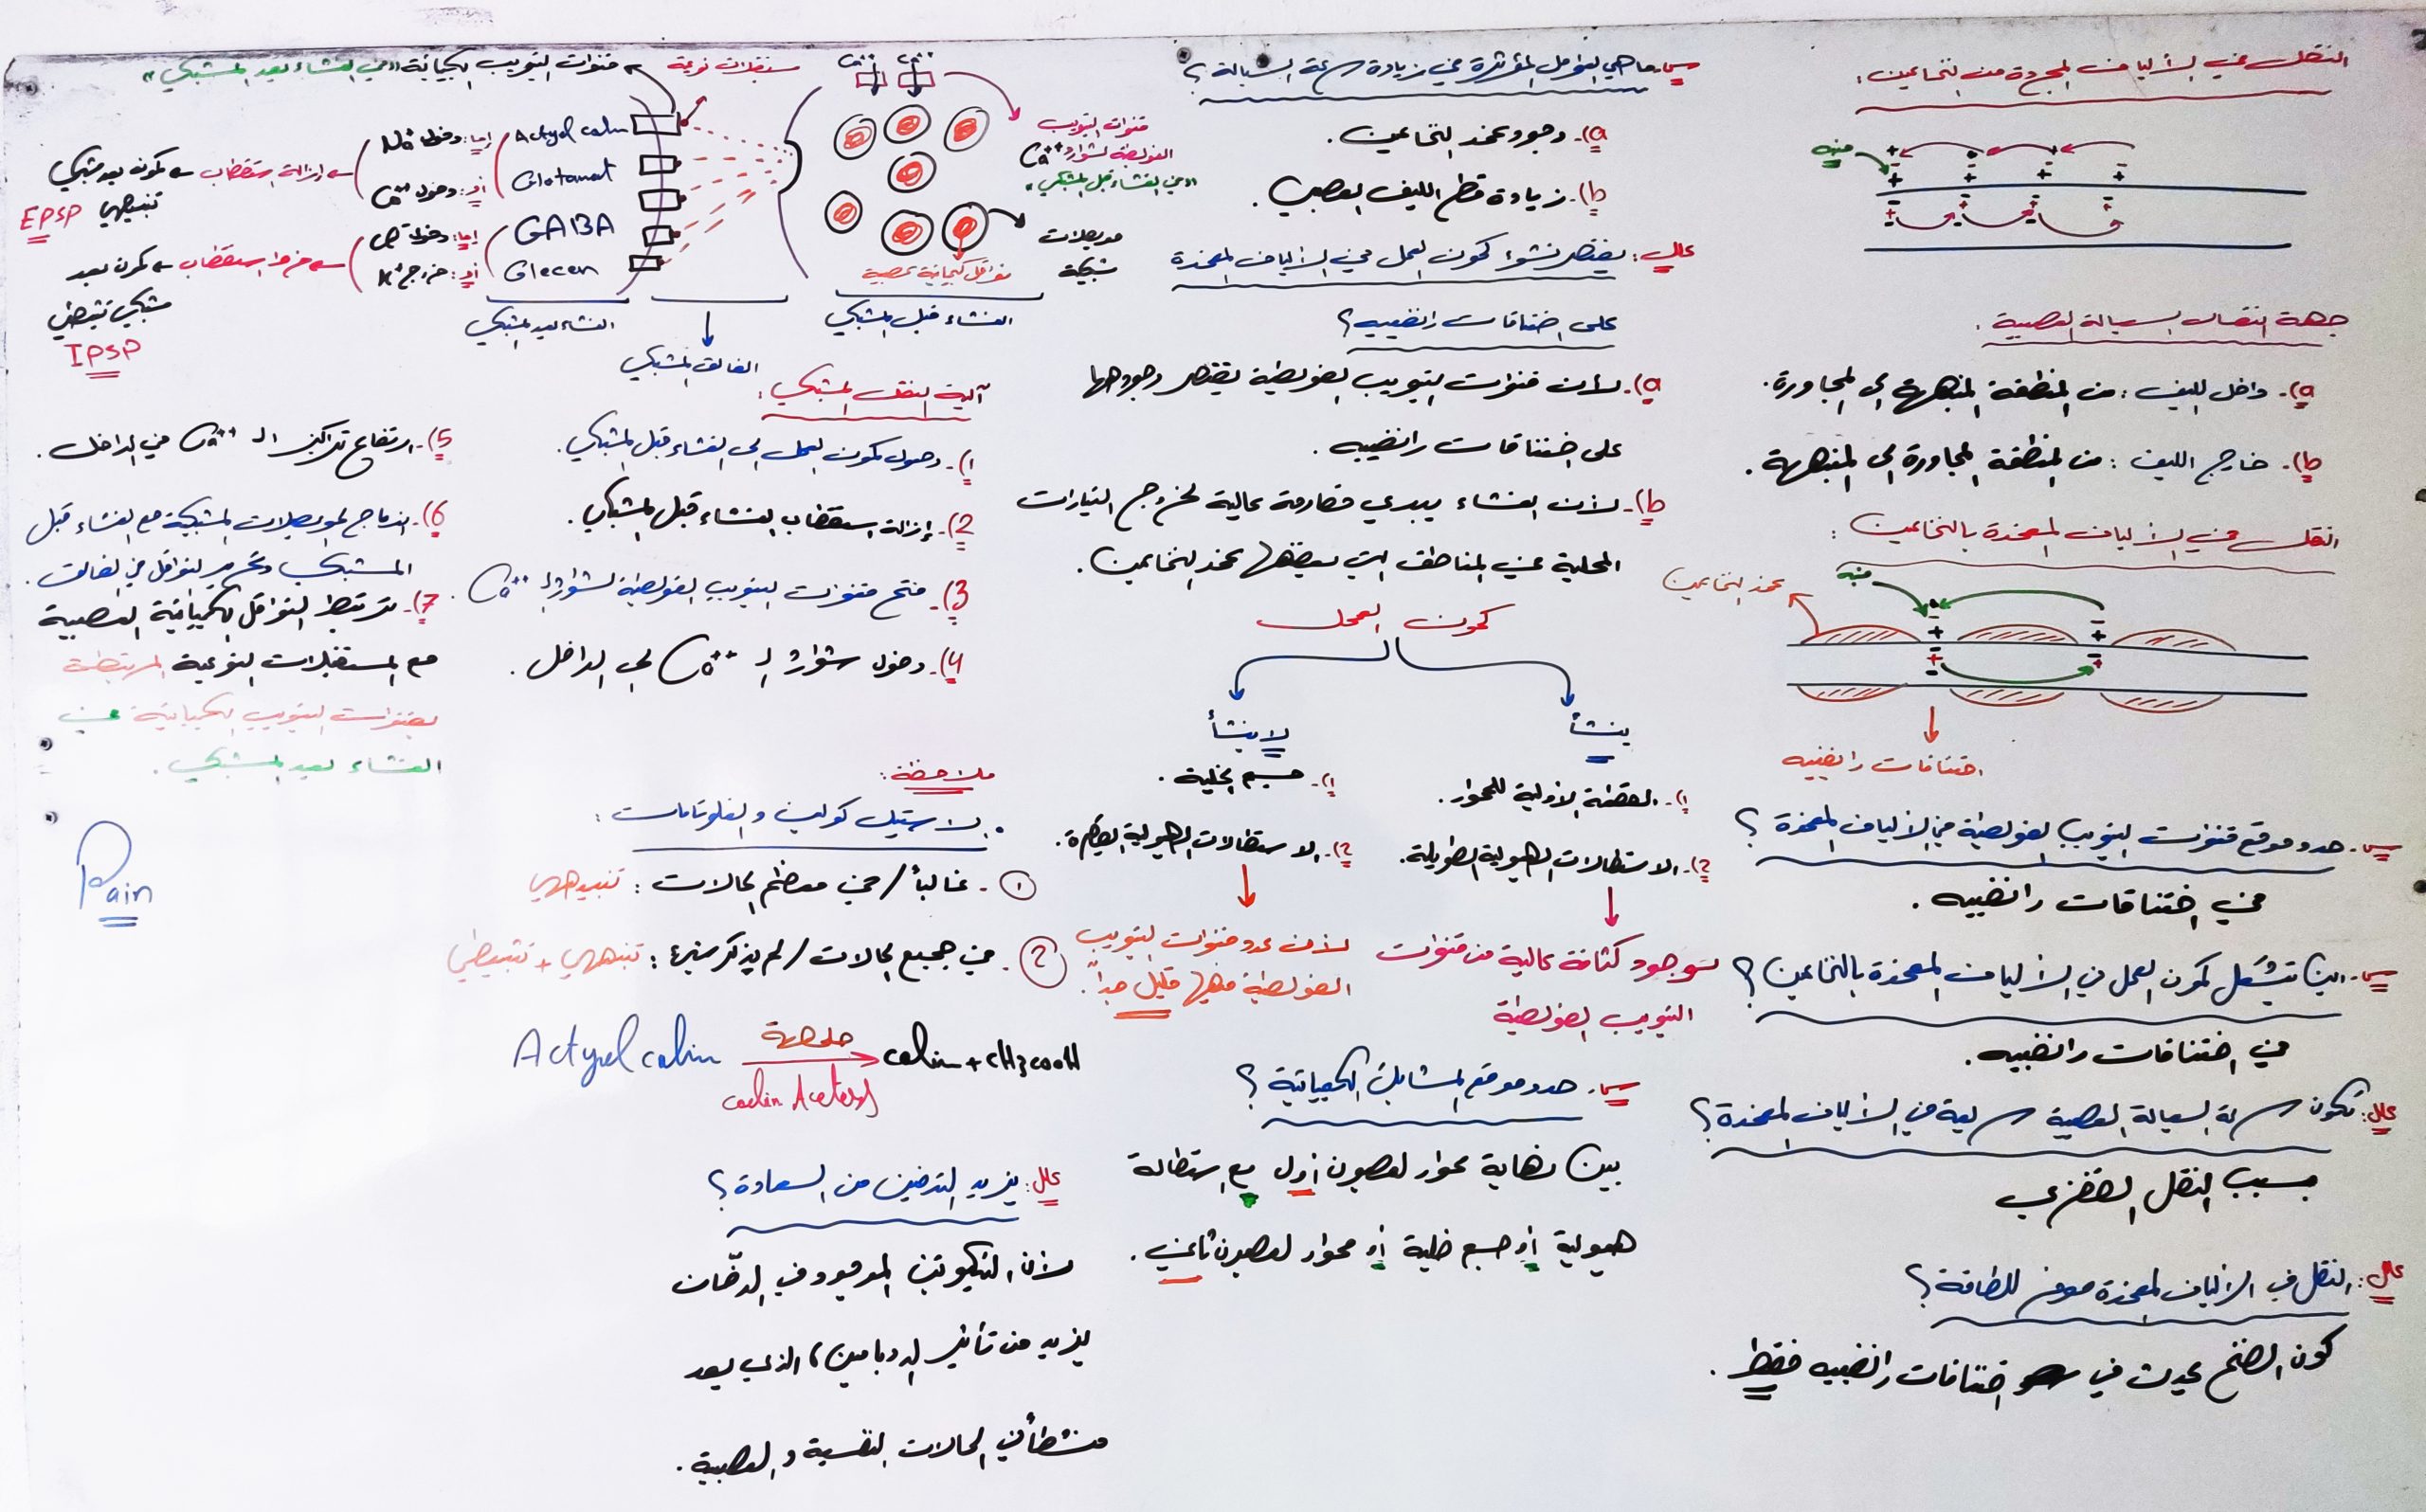 النقل في الألياف المجردة من النخاعين:
منبه
جهة انتقال السيالة العصبية.
a)- داخل الليف: من المنطقة المنبهة إلى المجاورة.
b)- خارج الليف: من المنطقة المجاورة إلى المنبهة.
النقل في الألياف المغمدة بالنخاعين:
غمد النخاعين
منبه
اختناقات رانفييه
س- حدد موقع قنوات التبويب الفولطية في الألياف المغمدة؟
في اختناقات رانفييه.
س- أين يتشكل كمون العمل في الألياف المغمدة بالنخاعين؟
في اختناقات رانفييه.
علل: تكون سرعة السيالة العصبية سريعة في الألياف المغمدة؟
بسبب النقل القفزي
علل: النقل في الألياف المغمدة موفر للطاقة؟
كون الضخ يحدث في اختناقات رانفييه فقط.
س- ما هي العوامل المؤثرة في زيادة سرعة السيالة؟
a)- وجود غمد النخاعين.
b)- زيادة قطر الليف العصبي.
علل: يقتصر نشوء كمون العمل في الألياف المغمدة
على اختناقات رانفييه؟
a)- لأن قنوات التبويب الفولطية يقتصر وجودها
على اختناقات رانفييه.
b)- لأن الغشاء يبدي مقاومة عالية لخروج التيارات
المحلية في المناطق التي يغطيها غمد النخاعين.
كمون العمل
ينشأ
1)- القطعة الأولية للمحوار.
2)- الاستطالات الهيولية الطويلة.
لوجود كثافة عالية من قنوات
التبويب الفولطية
لا ينشأ
1)- جسم الخلية.
2)- الاستطالات الهيولية القصيرة.
لأن عدد قنوات التبويب
الفولطية فيها قليل جداً.
س- حدد موقع المشابك الكيميائية؟
بين نهاية محوار لعصبون أول مع استطالة
هيولية أو جسم خلية أو محوار لعصبون ثاني.
Ca++ Ca++
قنوات التبويب
الفولطية لشوارد Ca++
"في الغشاء قبل المشبكي"
حويصلات
مشبكية
نواقل كيميائية عصبية
الغشاء قبل المشبكي
الفالق المشبكي
الغشاء بعد المشبكي
مستقبلات نوعية
قنوات التبويب الكيميائية "في الغشاء بعد المشبكي"
Actyel calin
Glotamat
GABA
Glecen
إما: دخول Na+
أو: دخول Ca++
إزالة استقطاب ← كمون بعد مشبكي
تنبيهي EPSP
إما: دخول Cl-
أو: خروج K+
فرط استقطاب ← كمون بعد
مشبكي تثبيطي
IPSP
آلية النقل المشبكي:
1)- وصول كمون العمل إلى الغشاء قبل المشبكي.
2)- إزالة استقطاب الغشاء قبل المشبكي.
3)- فتح قنوات التبويب الفولطية لشوارد الـ Ca++.
4)- دخول شوارد الـ Ca++ إلى الداخل.
5)- ارتفاع تراكيز الـ Ca++ في الداخل.
6)- اندماج الحويصلات المشبكية مع الغشاء قبل
المشبكي وتحرير النواقل في الفالق.
7)- ترتبط النواقل الكيميائية العصبية
مع المستقبلات النوعية المرتبطة
بقنوات التبويب الكيميائية في
الغشاء بعد المشبكي.
ملاحظة:
• الاستيل كولين والغلوتامات:
1- غالباً / في معظم الحالات: تنبيهي
2- في جميع الحالات / لم يذكر شيء: تنبيهي + تثبيطي
Actyel calin حلمهة calin + CH3COOH
علل: يزيد التدخين من السعادة؟
لأن النيكوتين الموجود في الدخان
يزيد من تأثير الدوبامين، الذي يعد
منشطاً في الحالات النفسية والعصبية.
Pain